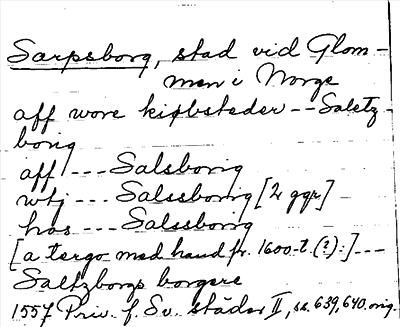 Sarpsborg, stad vid Glom-
men i Norge
aff wore kiøbsteder -- Saletz-
borig
aff --- Salsborig
wtj --- Salssborig [2 ggr]
hos --- Salssborig
[a tergo med hand fr. 1600-t. (?):] ---
Saltzborgs borgere
1557 Priv. f. Sv. städer II, s. 639, 640. orig.